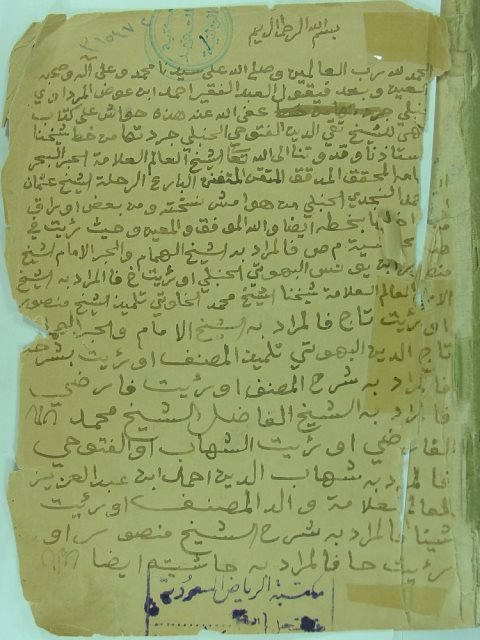 بسم الله الرحمن الرحيم
الحمد لله رب العالمين وصلى الله على سيدنا محمد وعلى آله وصحبه
اجمعين وبعد فيقول العبد الفقير احمد ابن عوض المرداوي
الحنبلي عفى الله عنه هذه حواش على كتاب
للشيخ تقي الدين الفتوحي الحنبلي جردتها من خط شيخنا
واستاذنا وقدوتنا الى الله تعالى الشيخ العالم العلامة الحبر البحر
المحقق المدقق المتقن المتفنن البارع الرحلة الشيخ عثمان
احمد النجدي الحنبلي من هوامش نسخته ومن بعض اوراق
بخطه ايضا والله الموفق والمعين وحيث رئيت في
م ص فالمراد به الشيخ الهمام والبحر الامام الشيخ
منصور ابن يونس البهوتي الحنبلي او رئيت م خ فالمراد به الشيخ
العالم العلامة شيخنا الشيخ محمد الخلوتي تلميذ الشيخ منصور
او رئيت تاج فالمراد به الشيخ الامام والحبر الهمام
تاج الدين البهوتي تلميذ المصنف او رئيت بشرحه
فالمراد به شرح المصنف او رئيت فارضي
فالمراد به الشيخ الفاضل الشيخ محمد
الفارضي او رئيت الشهاب او الفتوحي
فالمراد به شهاب الدين احمد ابن عبد العزيز
العلامة والد المصنف او رئيت
شيئا فالمراد به شرح الشيخ منصور او
رئيت حا فالمراد به حاشيته ايضا
مكتبة الرياض السعودية